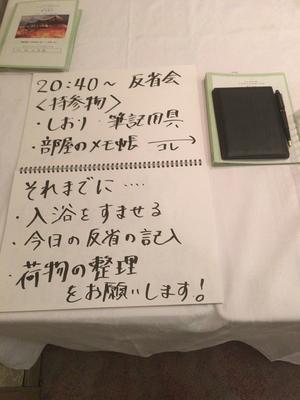 20:40～ 反省会
<持参物>
・しおり ・筆記用具
・部屋のメモ帳 コレ→
それまでに‥‥
・入浴をすませる
・今日の反省の記入
・荷物の整理
をお願いします!